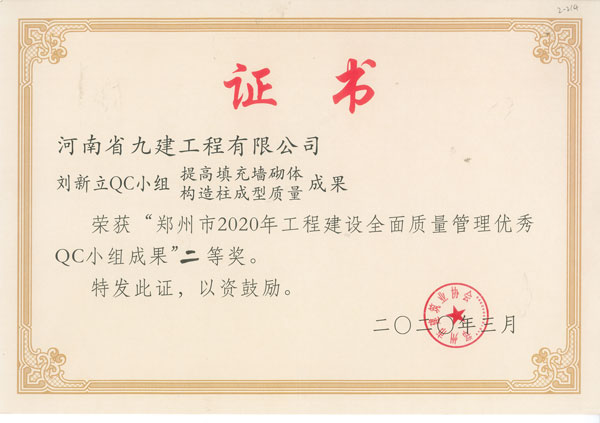 2-214
证书
河南省九建工程有限公司
刘新立QC小组 提高填充墙砌体 成果
构造柱成型质量
荣获“郑州市2020年工程建设全面质量管理优秀
QC小组成果”二等奖。
特发此证，以资鼓励。
二〇二〇年三月
郑州市建筑业协会